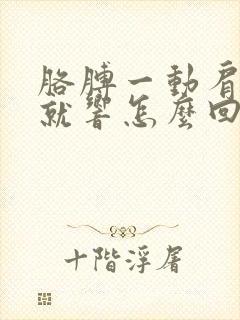 胳膊一動肩
就響怎麼回
十階浮屠